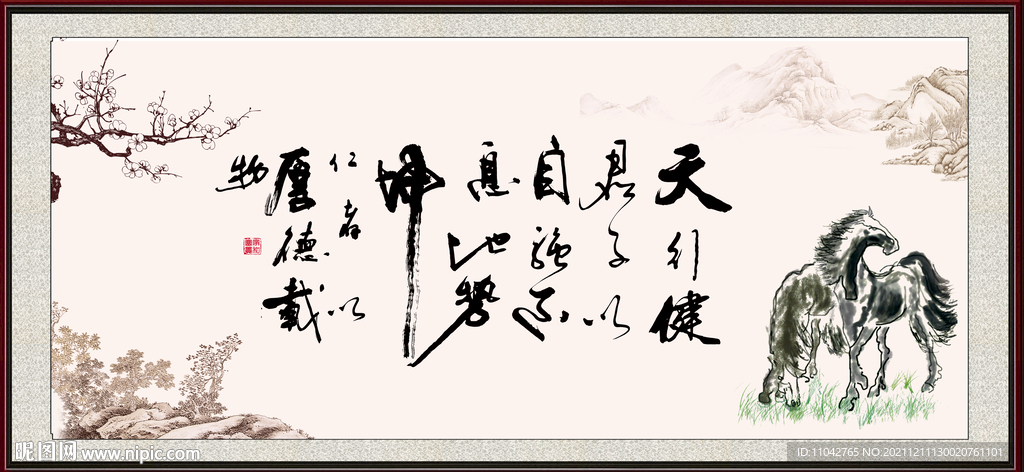 天行健
君子以
自強不
息地勢
坤
仁者以
厚德載
物
昵图网 www.nipic.com
ID:11042765 NO:20211211130020761101